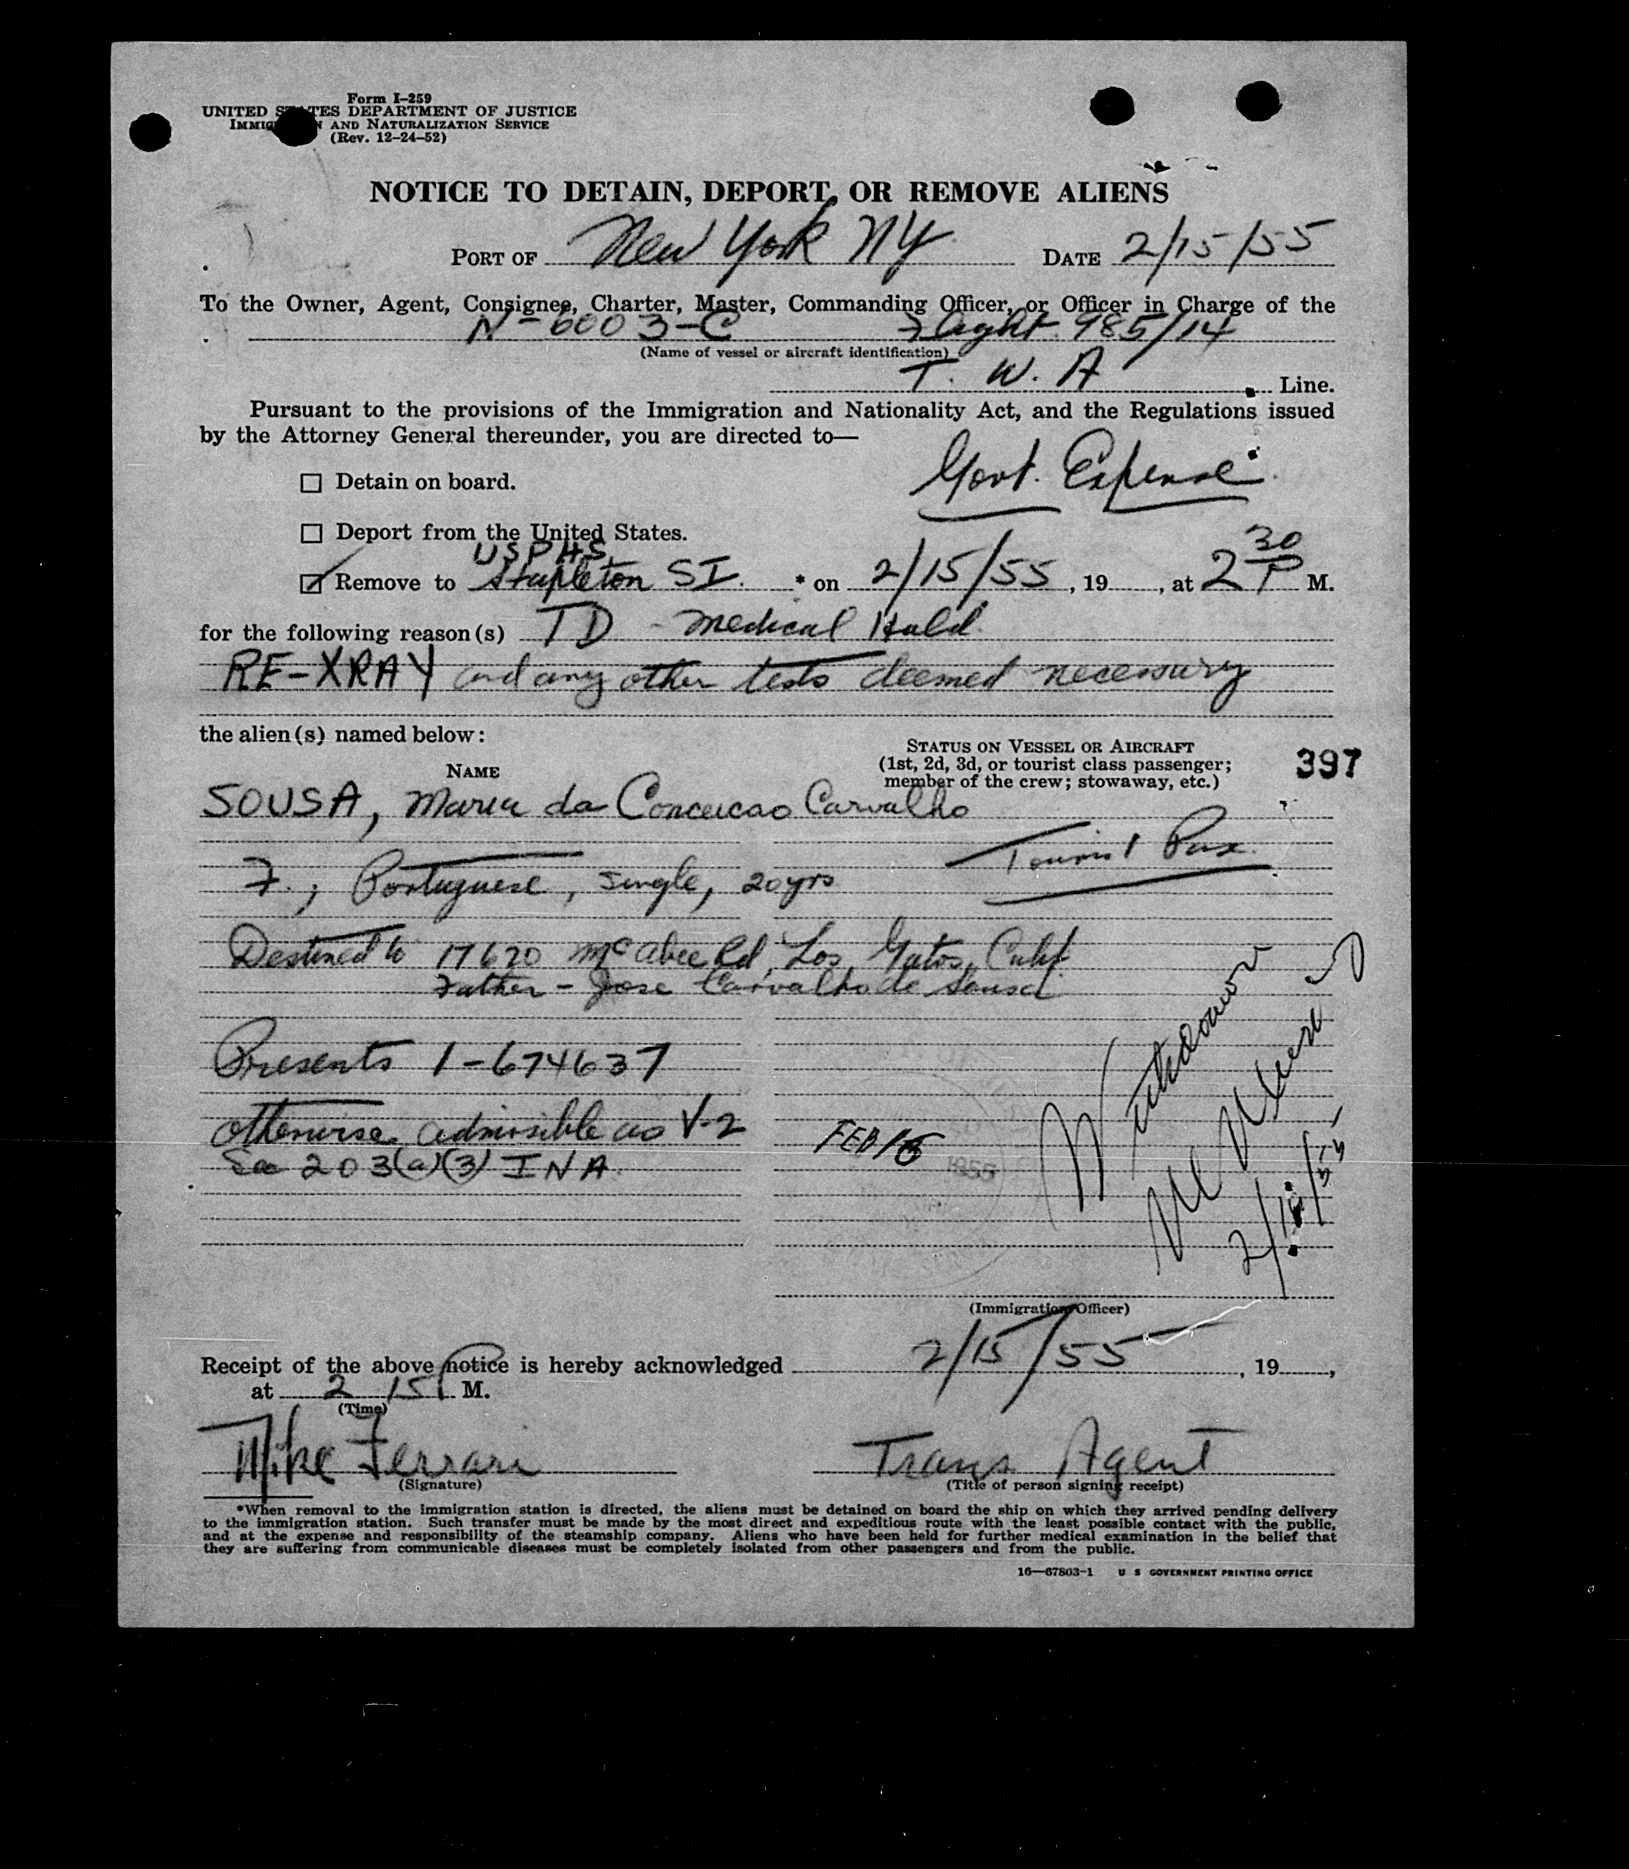 Form I-259
UNITED STATES DEPARTMENT OF JUSTICE
IMMIGRATION AND NATURALIZATION SERVICE
(Rev. 12-24-52)
NOTICE TO DETAIN, DEPORT, OR REMOVE ALIENS
PORT OF New York NY DATE 2/15/55
To the Owner, Agent, Consignee, Charter, Master, Commanding Officer, or Officer in Charge of the
N-6003-C Flight 985/14
(Name of vessel or aircraft identification)
T. W. A Line.
Pursuant to the provisions of the Immigration and Nationality Act, and the Regulations issued
by the Attorney General thereunder, you are directed to—
Govt. Expense
☐ Detain on board.
☐ Deport from the United States.
USPHS
☑ Remove to Stapleton SI. * on 2/15/55, 19, at 2 30 P M.
for the following reason(s) TD - Medical Hold
RE-XRAY and any other tests deemed necessary
the alien(s) named below:
STATUS ON VESSEL OR AIRCRAFT
(1st, 2d, 3d, or tourist class passenger;
member of the crew; stowaway, etc.)
397
NAME
SOUSA, Maria da Conceicao Carvalho
Tourist Pax.
F., Portuguese, single, 20 yrs
Destined to 17620 McAbee Rd, Los Gatos, Calif.
Father - Jose Carvalho de Sousa
Presents 1-674637
otherwise admissible as V-2
Sec 203(a)(3) INA.
FEB 15 1955
Withdrawn
2/15/55
(Immigration Officer)
Receipt of the above notice is hereby acknowledged 2/15/55, 19,
at 2 15 P M.
(Time)
Mike Ferrari Trans Agent
(Signature) (Title of person signing receipt)
*When removal to the immigration station is directed, the aliens must be detained on board the ship on which they arrived pending delivery
to the immigration station. Such transfer must be made by the most direct and expeditious route with the least possible contact with the public,
and at the expense and responsibility of the steamship company. Aliens who have been held for further medical examination in the belief that
they are suffering from communicable diseases must be completely isolated from other passengers and from the public.
16—67803-1 U S GOVERNMENT PRINTING OFFICE